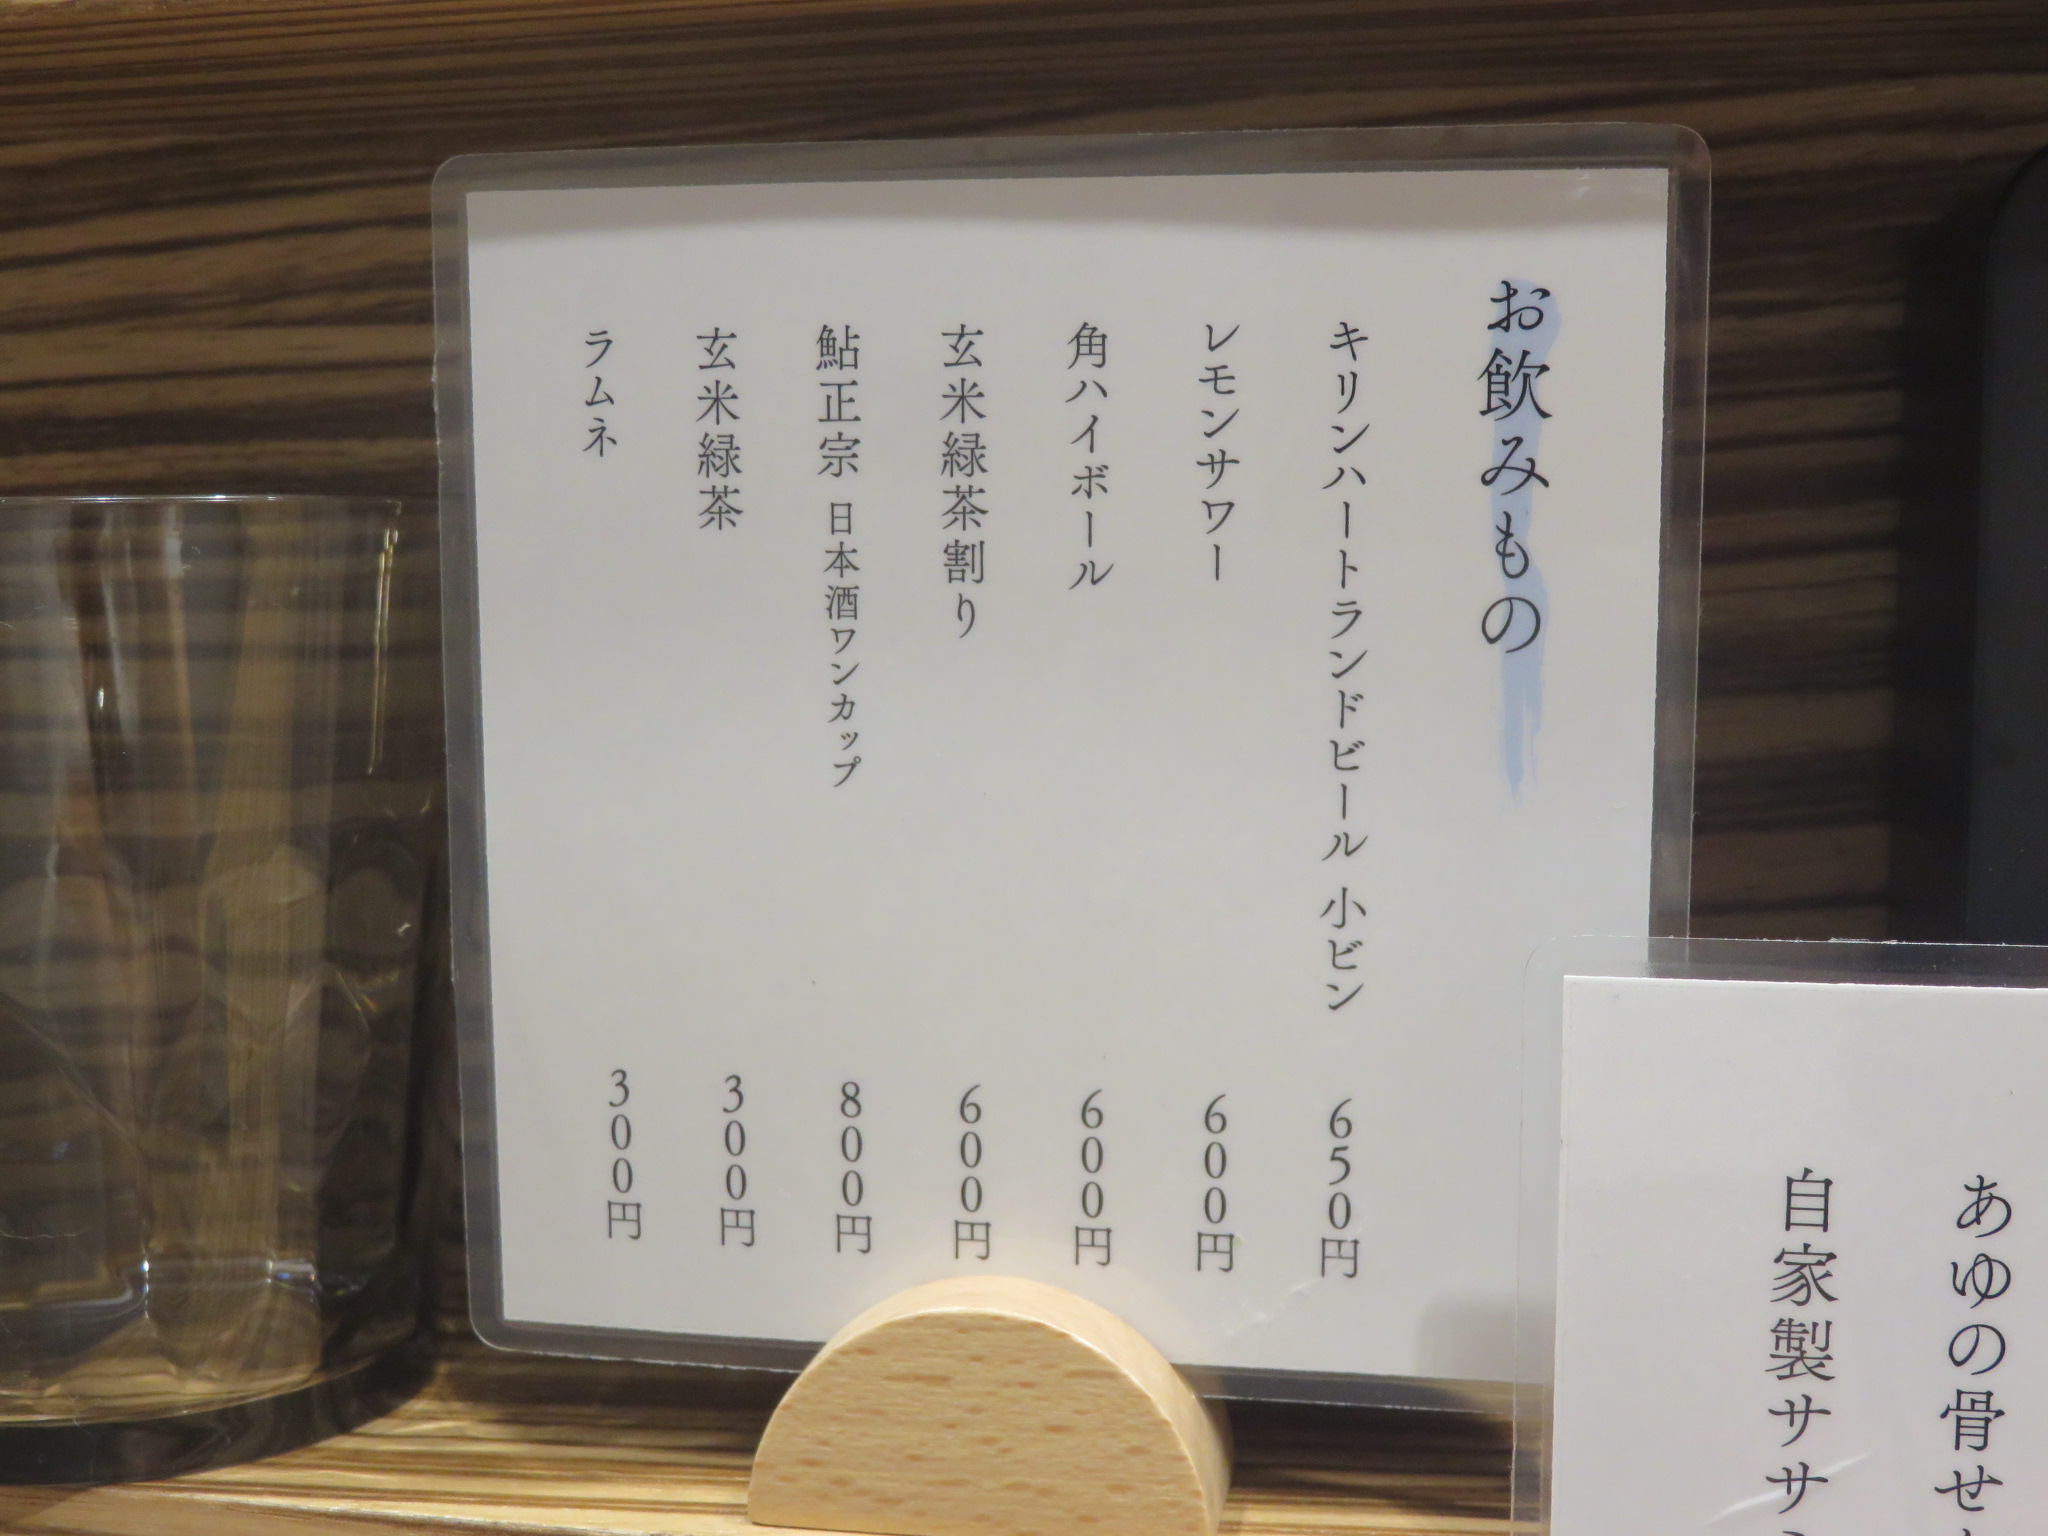 お飲みもの
キリンハートランドビール 小ビン 650円
レモンサワー 600円
角ハイボール 600円
玄米緑茶割り 600円
鮎正宗 日本酒ワンカップ 800円
玄米緑茶 300円
ラムネ 300円
あゆの骨せ
自家製ササ